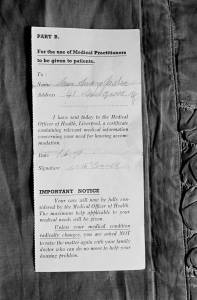 PART B.
For the use of Medical Practitioners
to be given to patients.
To :
Name
Address 41
I have sent today to the Medical
Officer of Health, Liverpool, a certificate
containing relevant medical information
concerning your need for housing accom-
modation.
Date
Signature
IMPORTANT NOTICE
Your case will now be fully con-
sidered by the Medical Officer of Health.
The maximum help applicable to your
medical needs will be given.
Unless your medical condition
radically changes, you are asked NOT
to raise the matter again with your family
doctor who can do no more to help your
housing problem.